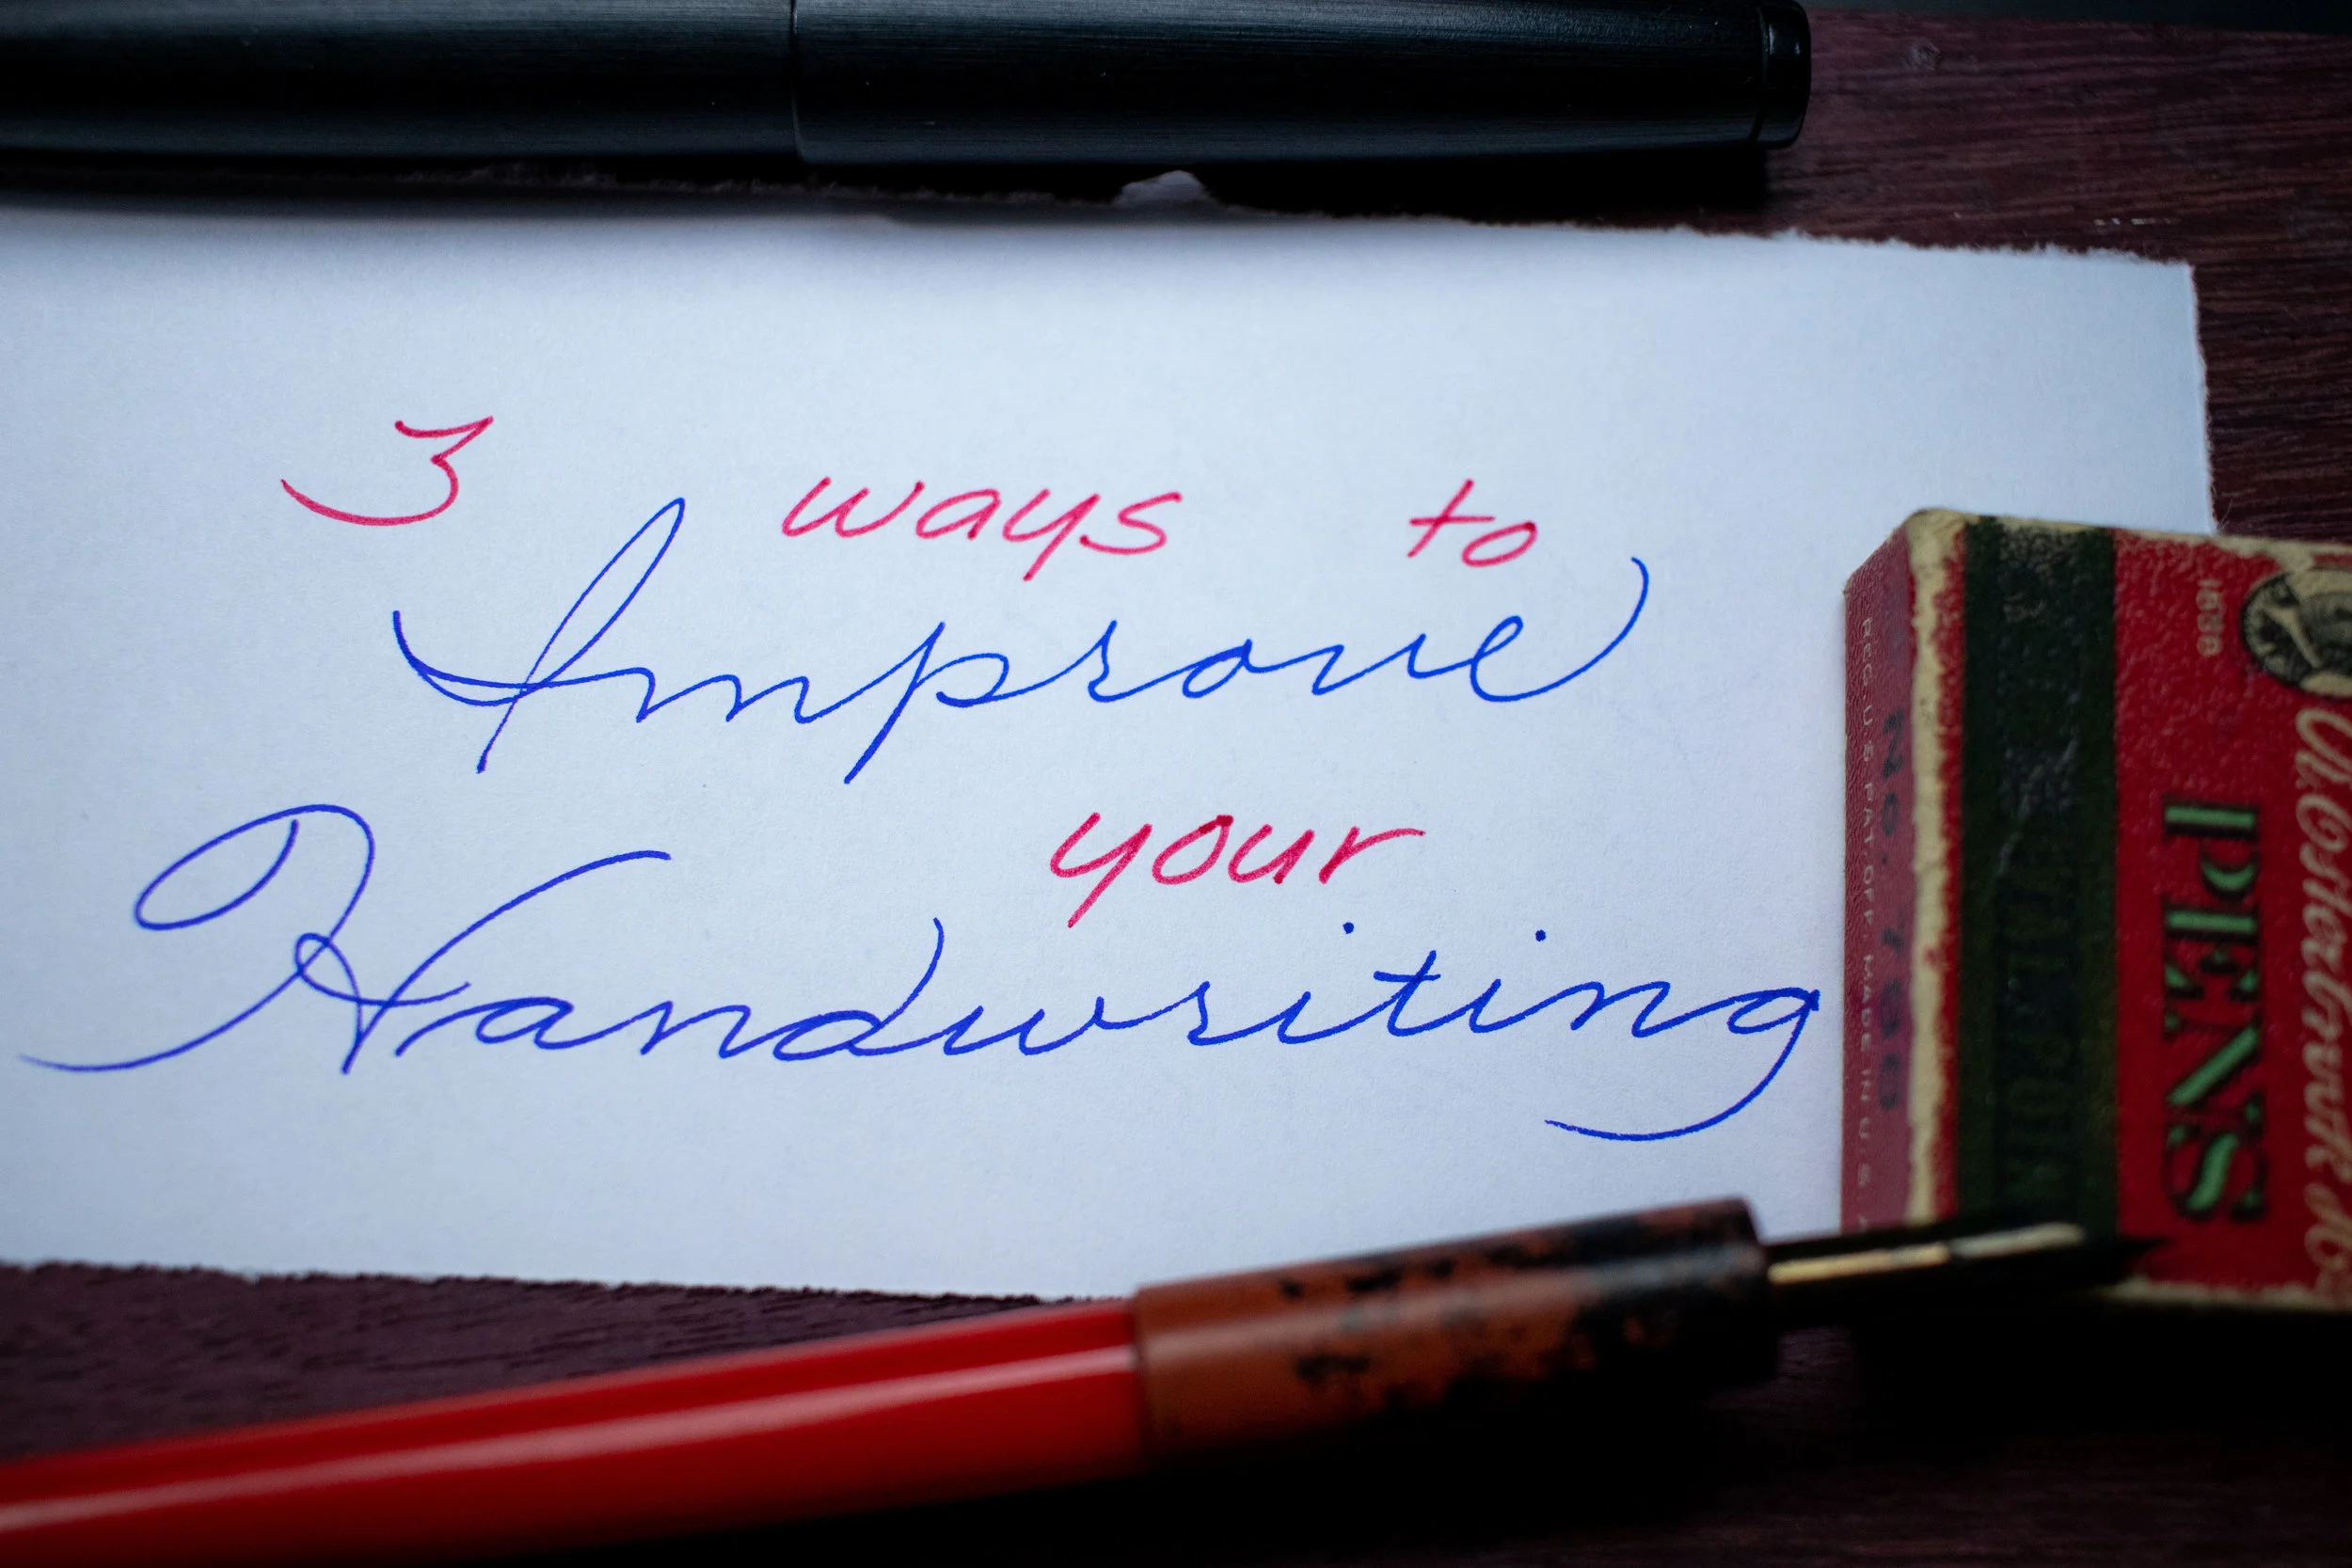 3 ways to
Improve
your
Handwriting
REG. U.S. PAT. OFF. MADE IN U.S.A.
No. 788
PENS
Esterbrook
1858